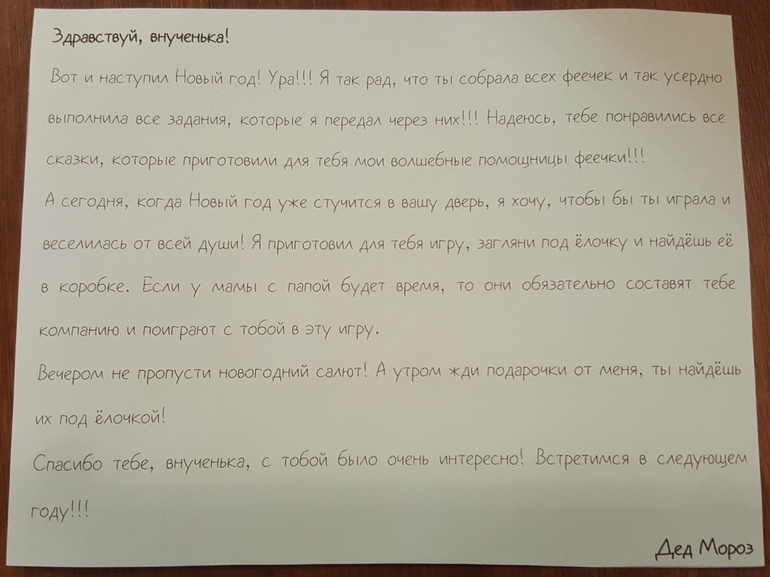 Здравствуй, внученька!
Вот и наступил Новый год! Ура!!! Я так рад, что ты собрала всех феечек и так усердно
выполнила все задания, которые я передал через них!!! Надеюсь, тебе понравились все
сказки, которые приготовили для тебя мои волшебные помощницы феечки!!!
А сегодня, когда Новый год уже стучится в вашу дверь, я хочу, чтобы бы ты играла и
веселилась от всей души! Я приготовил для тебя игру, загляни под ёлочку и найдёшь её
в коробке. Если у мамы с папой будет время, то они обязательно составят тебе
компанию и поиграют с тобой в эту игру.
Вечером не пропусти новогодний салют! А утром жди подарочки от меня, ты найдёшь
их под ёлочкой!
Спасибо тебе, внученька, с тобой было очень интересно! Встретимся в следующем
году!!!
Дед Мороз